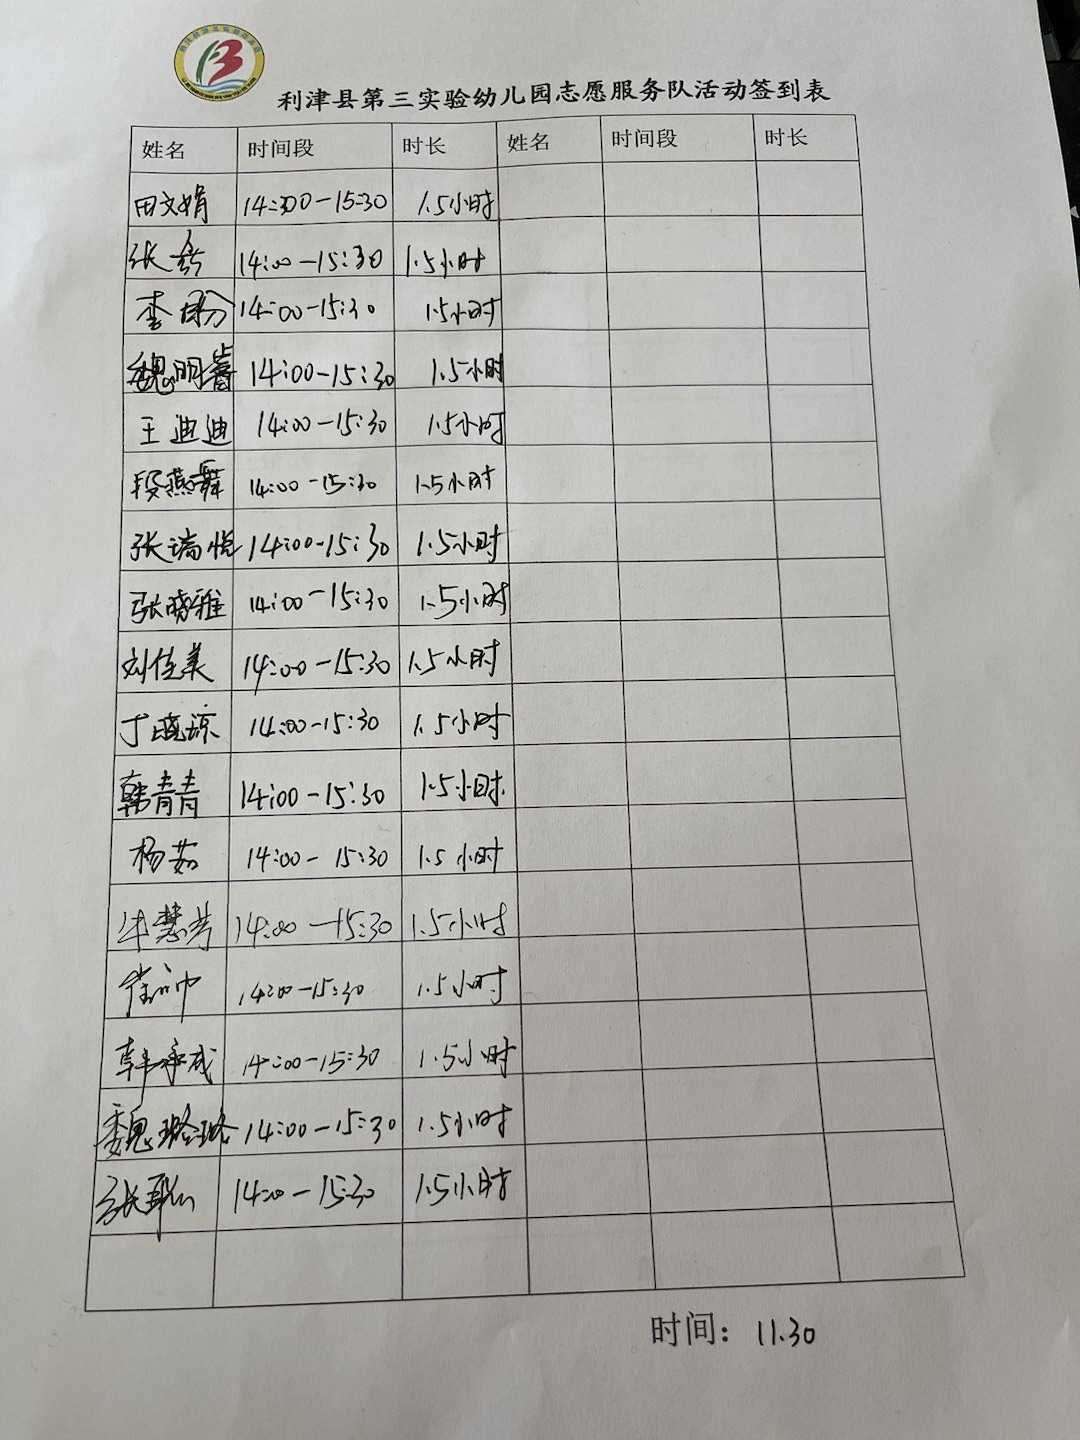 利津县第三实验幼儿园志愿服务队活动签到表
姓名 时间段 时长 姓名 时间段 时长
田文娟 14:300-15:30 1.5小时
张 14:00-15:30 1.5小时
李 14:00-15:30 1.5小时
魏明 14:00-15:30 1.5小时
王迪迪 14:00-15:30 1.5小时
段燕舞 14:00-15:30 1.5小时
张瑞悦 14:00-15:30 1.5小时
张晓雅 14:00-15:30 1.5小时
刘佳美 14:00-15:30 1.5小时
丁晓琼 14:00-15:30 1.5小时
韩青青 14:00-15:30 1.5小时
杨茹 14:00-15:30 1.5小时
牛慧芳 14:00-15:30 1.5小时
14:00-15:30 1.5小时
韩承成 14:00-15:30 1.5小时
魏璐璐 14:00-15:30 1.5小时
张 14:00-15:30 1.5小时
时间：11.30